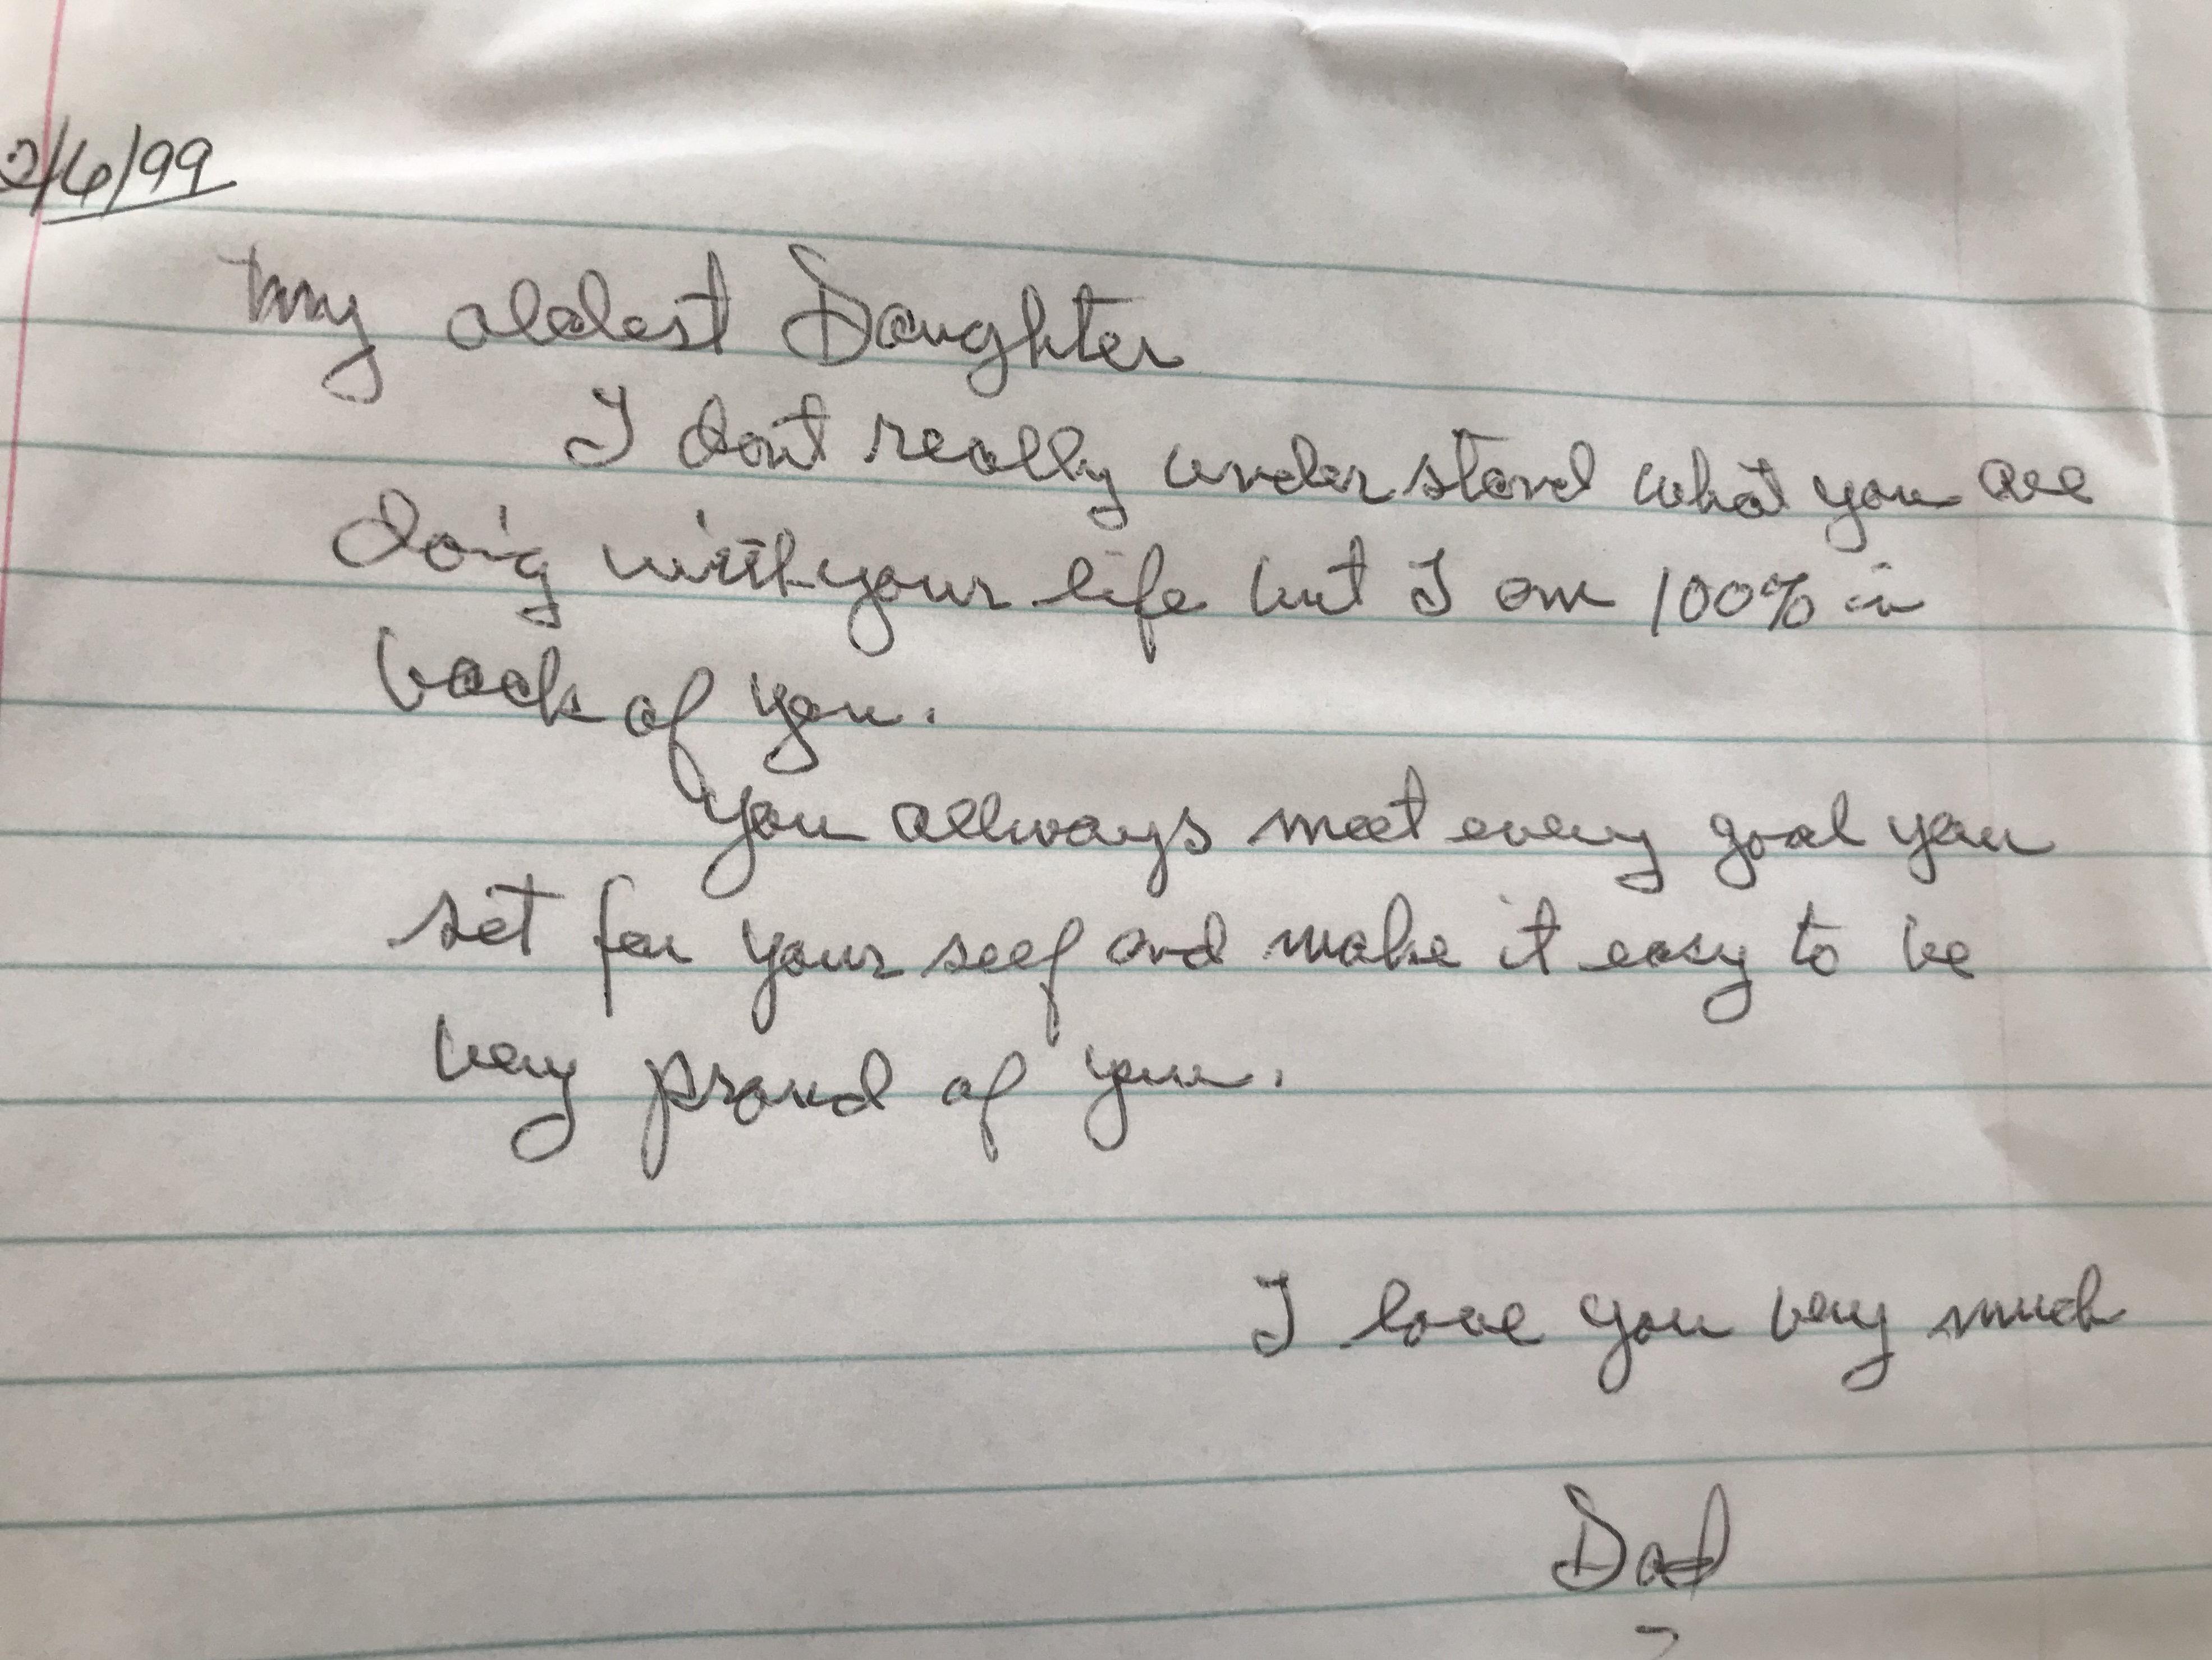 2/6/99
My oldest Daughter
I don't really under stand what you are
doing with your life but I am 100% in
back of you.
You allways meet every goal you
set for your self and make it easy to be
very proud of you.
I love you very much
Dad